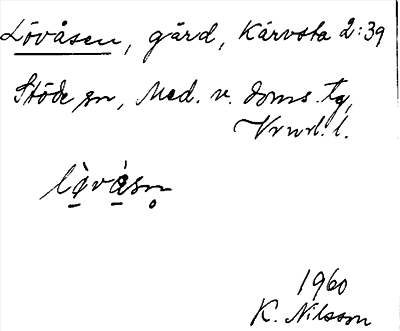 Lövåsen, gård, Kärvsta 2:39
Stöde sn, Med. v. doms. tg,
Vrnrl. l.
lö̀vàsn̥
1960
K. Nilsson